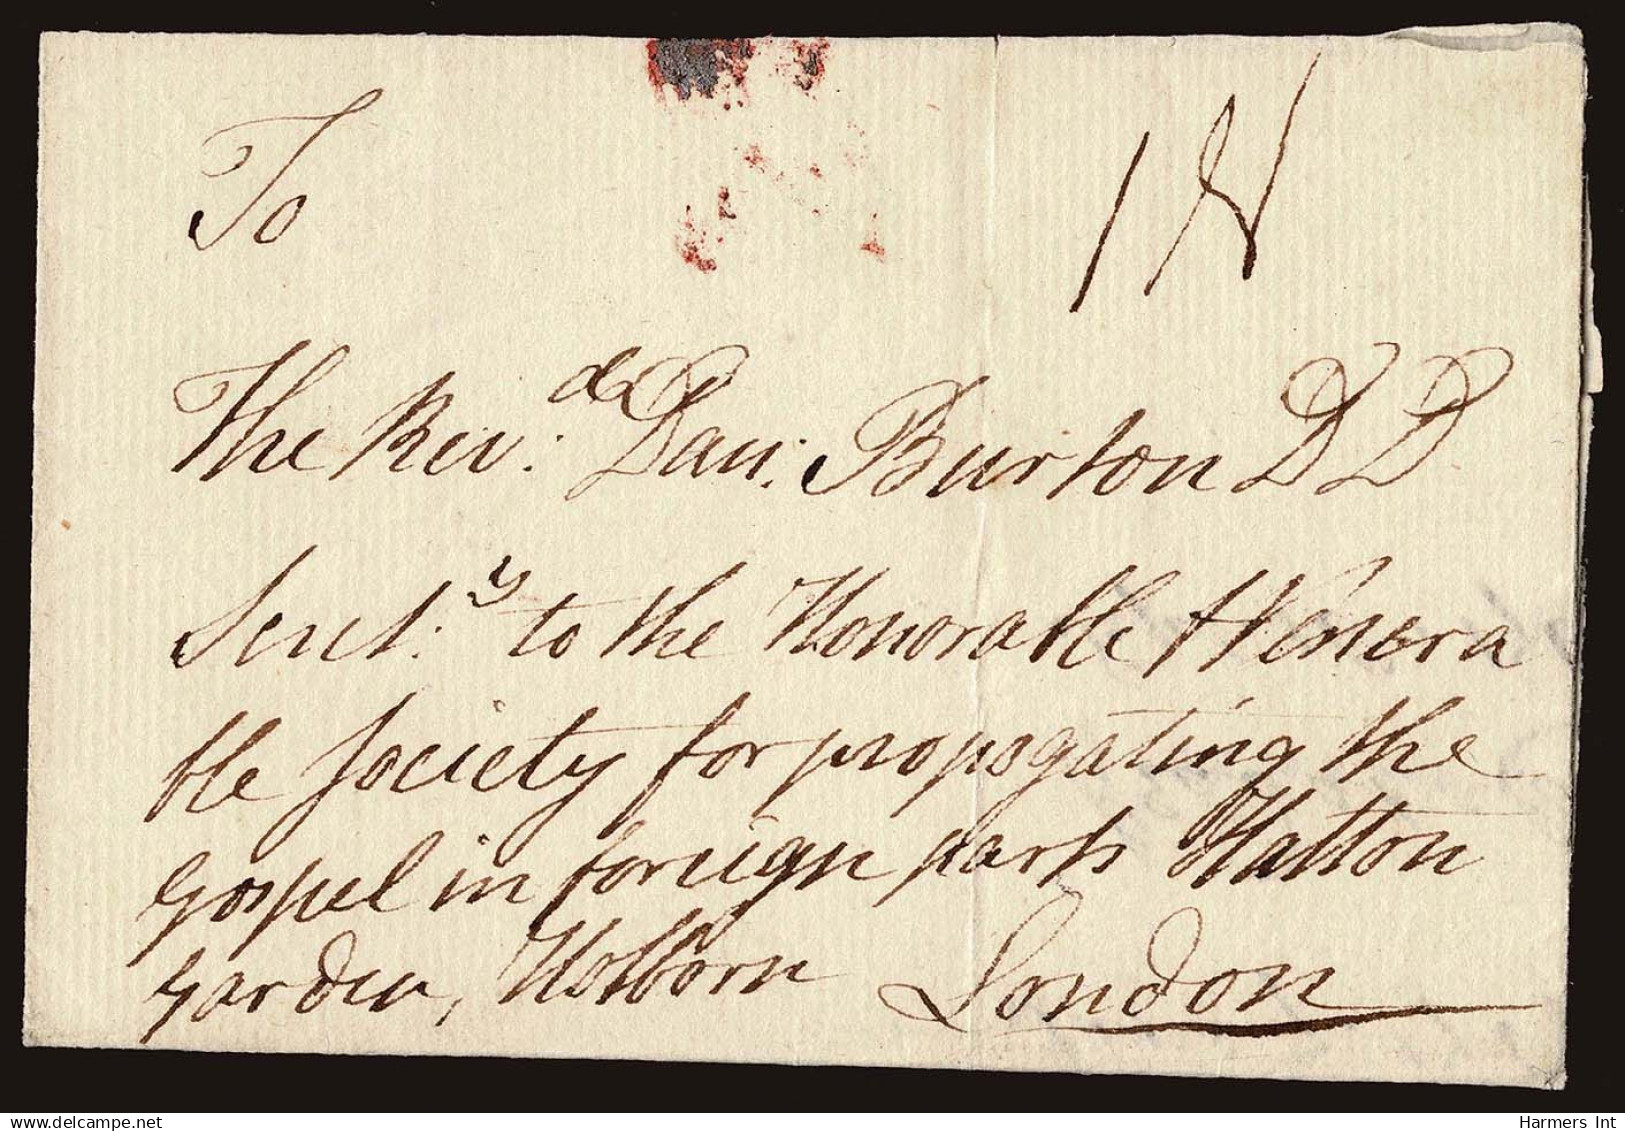 To
The Rev:d Dan: Burton DD
Secret:y to the Honorable & Venera
ble Society for propogating the
Gospel in foreign parts Hatton
Garden, Holborn London
delcampe.net
Harmers Int